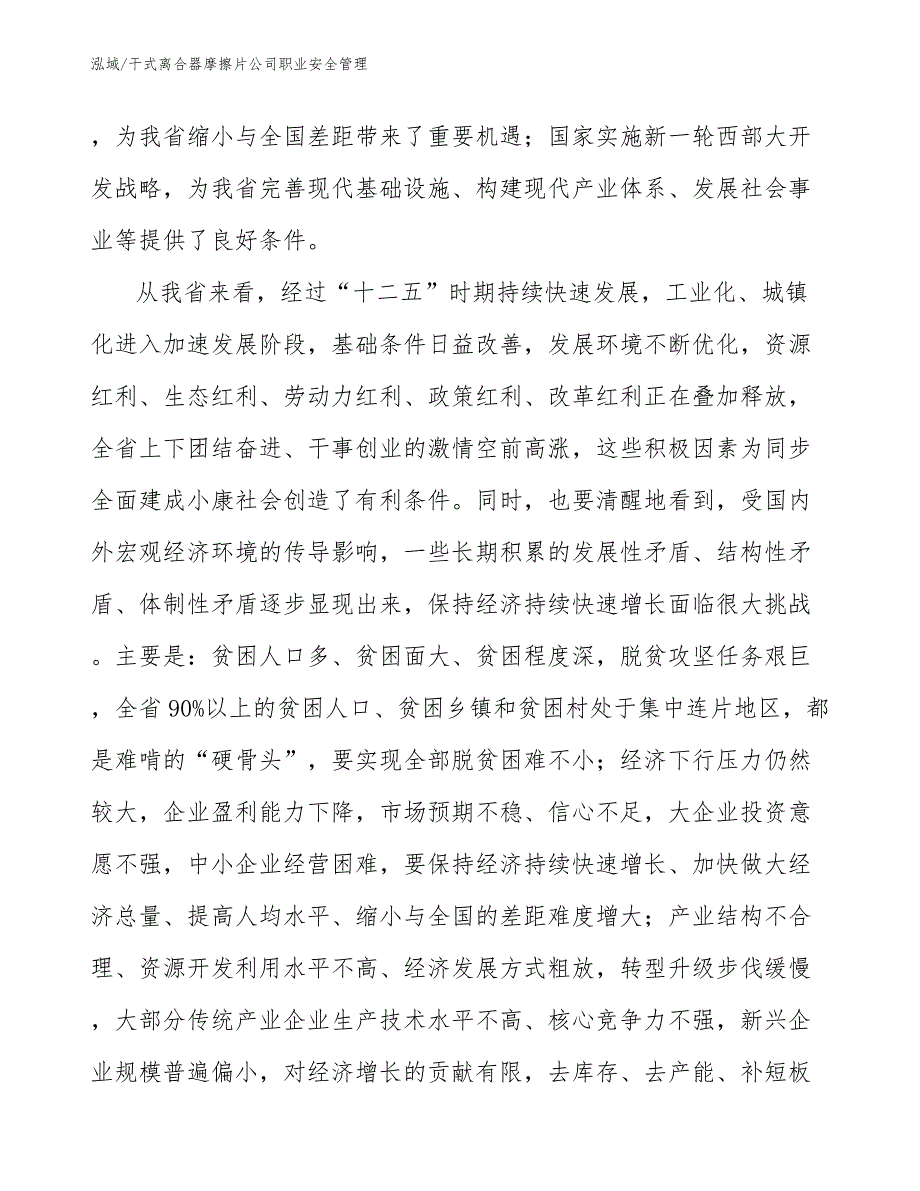 泓域/干式离合器摩擦片公司职业安全管理
，为我省缩小与全国差距带来了重要机遇；国家实施新一轮西部大开
发战略，为我省完善现代基础设施、构建现代产业体系、发展社会事
业等提供了良好条件。
从我省来看，经过“十二五”时期持续快速发展，工业化、城镇
化进入加速发展阶段，基础条件日益改善，发展环境不断优化，资源
红利、生态红利、劳动力红利、政策红利、改革红利正在叠加释放，
全省上下团结奋进、干事创业的激情空前高涨，这些积极因素为同步
全面建成小康社会创造了有利条件。同时，也要清醒地看到，受国内
外宏观经济环境的传导影响，一些长期积累的发展性矛盾、结构性矛
盾、体制性矛盾逐步显现出来，保持经济持续快速增长面临很大挑战
。主要是：贫困人口多、贫困面大、贫困程度深，脱贫攻坚任务艰巨
，全省90%以上的贫困人口、贫困乡镇和贫困村处于集中连片地区，都
是难啃的“硬骨头”，要实现全部脱贫困难不小；经济下行压力仍然
较大，企业盈利能力下降，市场预期不稳、信心不足，大企业投资意
愿不强，中小企业经营困难，要保持经济持续快速增长、加快做大经
济总量、提高人均水平、缩小与全国的差距难度增大；产业结构不合
理、资源开发利用水平不高、经济发展方式粗放，转型升级步伐缓慢
，大部分传统产业企业生产技术水平不高、核心竞争力不强，新兴企
业规模普遍偏小，对经济增长的贡献有限，去库存、去产能、补短板